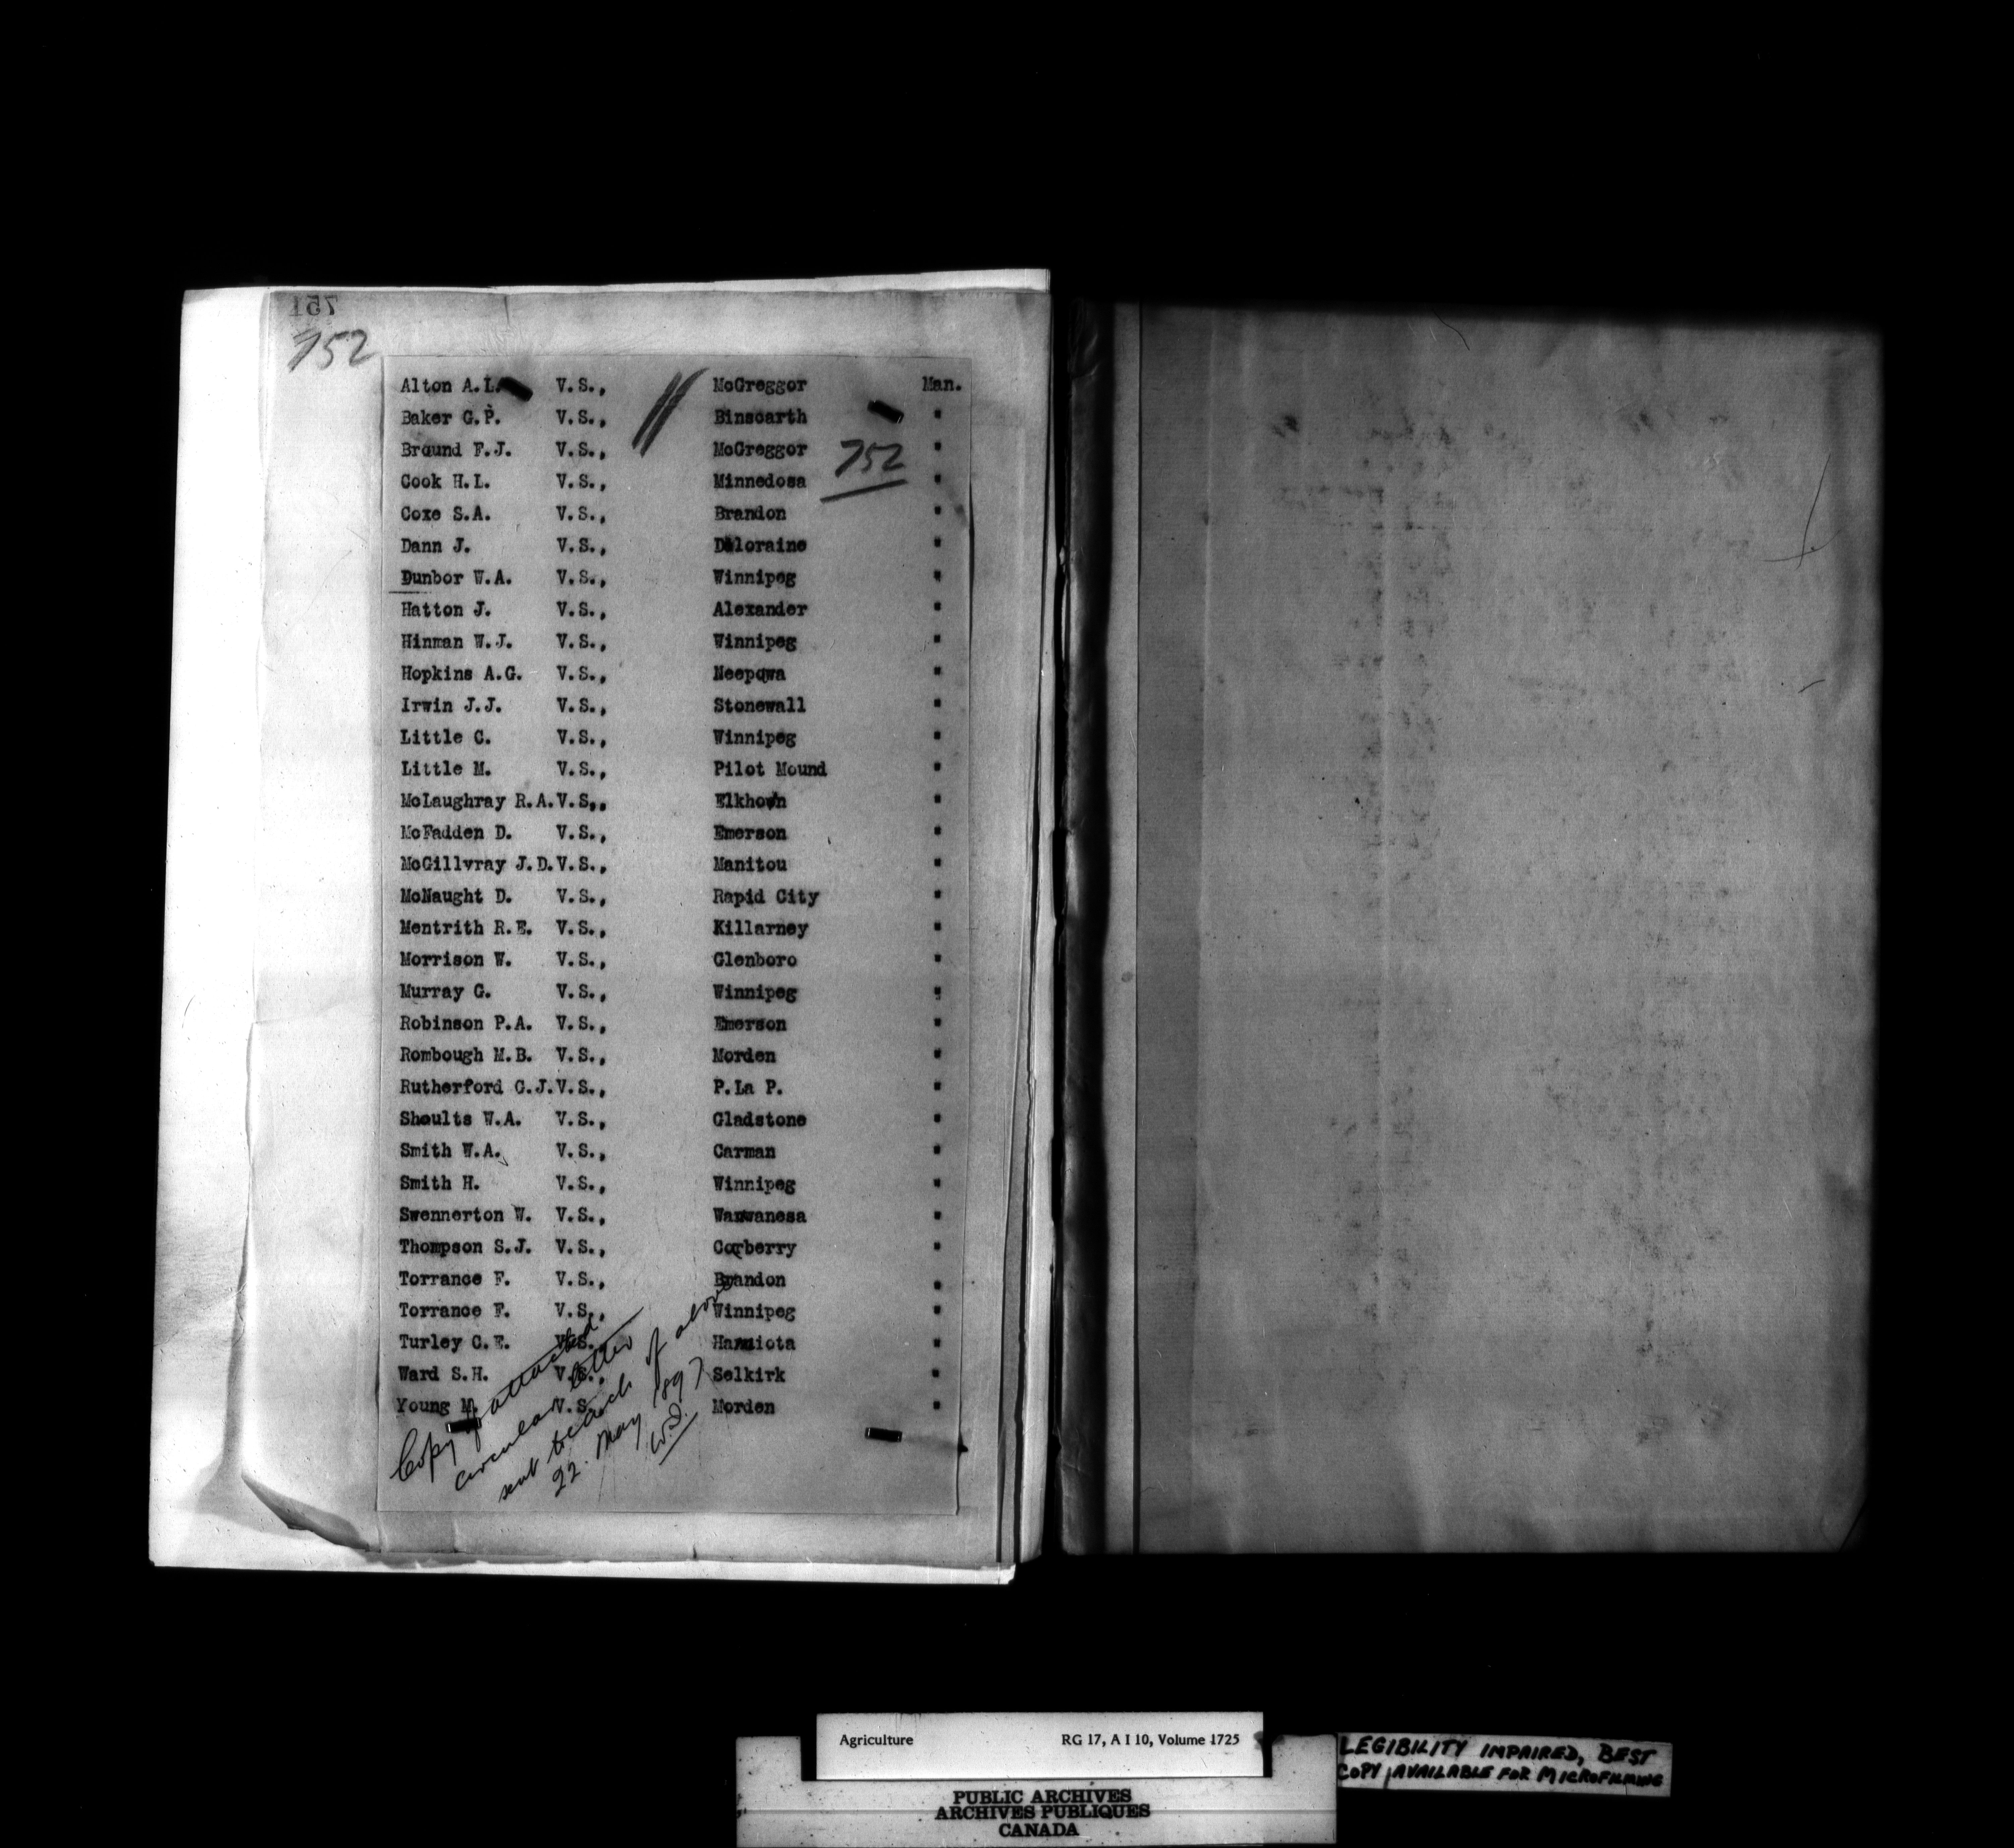 751
752
Alton A.L. V.S., McGreggor Man.
Baker G.P. V.S., Binscarth "
Braund F.J. V.S., McGreggor "
752
Cook H.L. V.S., Minnedosa "
Coxe S.A. V.S., Brandon "
Dann J. V.S., Deloraine "
Dunbor W.A. V.S., Winnipeg "
Hatton J. V.S., Alexander "
Hinman W.J. V.S., Winnipeg "
Hopkins A.G. V.S., Neepawa "
Irwin J.J. V.S., Stonewall "
Little C. V.S., Winnipeg "
Little M. V.S., Pilot Mound "
McLaughray R.A. V.S., Elkhorn "
McFadden D. V.S., Emerson "
McGillvray J.D. V.S., Manitou "
McNaught D. V.S., Rapid City "
Mentrith R.E. V.S., Killarney "
Morrison W. V.S., Glenboro "
Murray G. V.S., Winnipeg "
Robinson P.A. V.S., Emerson "
Rombough M.B. V.S., Morden "
Rutherford C.J. V.S., P.La P. "
Shoults W.A. V.S., Gladstone "
Smith W.A. V.S., Carman "
Smith H. V.S., Winnipeg "
Swennerton W. V.S., Wawanesa "
Thompson S.J. V.S., Carberry "
Torrance F. V.S., Brandon "
Torrance F. V.S., Winnipeg "
Turley C.E. V.S., Hamiota "
Ward S.H. V.S., Selkirk "
Young M. V.S., Morden "
Copy of attached
circular letter
sent to each of above
22. May 1897
W.D.
Agriculture RG 17, A I 10, Volume 1725
PUBLIC ARCHIVES
ARCHIVES PUBLIQUES
CANADA
LEGIBILITY IMPAIRED, BEST
COPY AVAILABLE FOR MICROFILMING